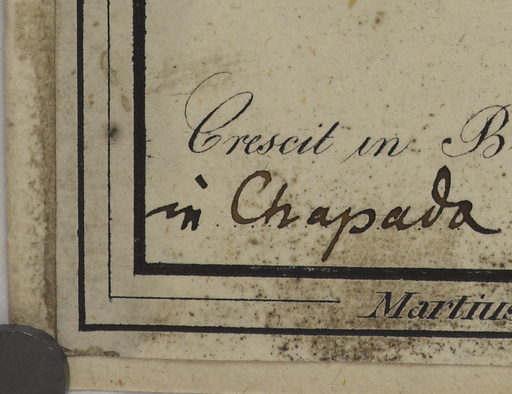 Crescit in B
in Chapada
Martius